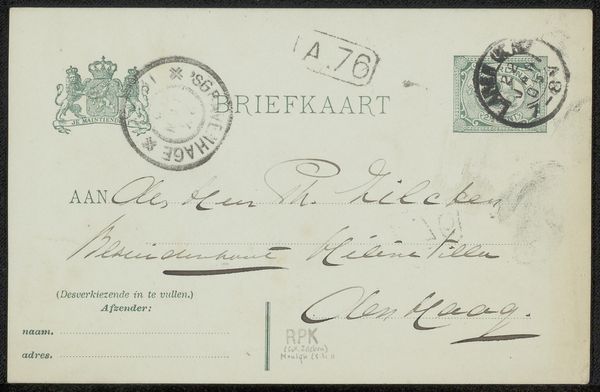 A.76
JE MAINTIENDRAI
BRIEFKAART
'S GRAVENHAGE
AAN Den Heer Ph. Zilcken
Bezuidenhout Hélène Villa
Den Haag.
(Desverkiezende in te vullen.)
Afzender:
naam.
adres.
RPK